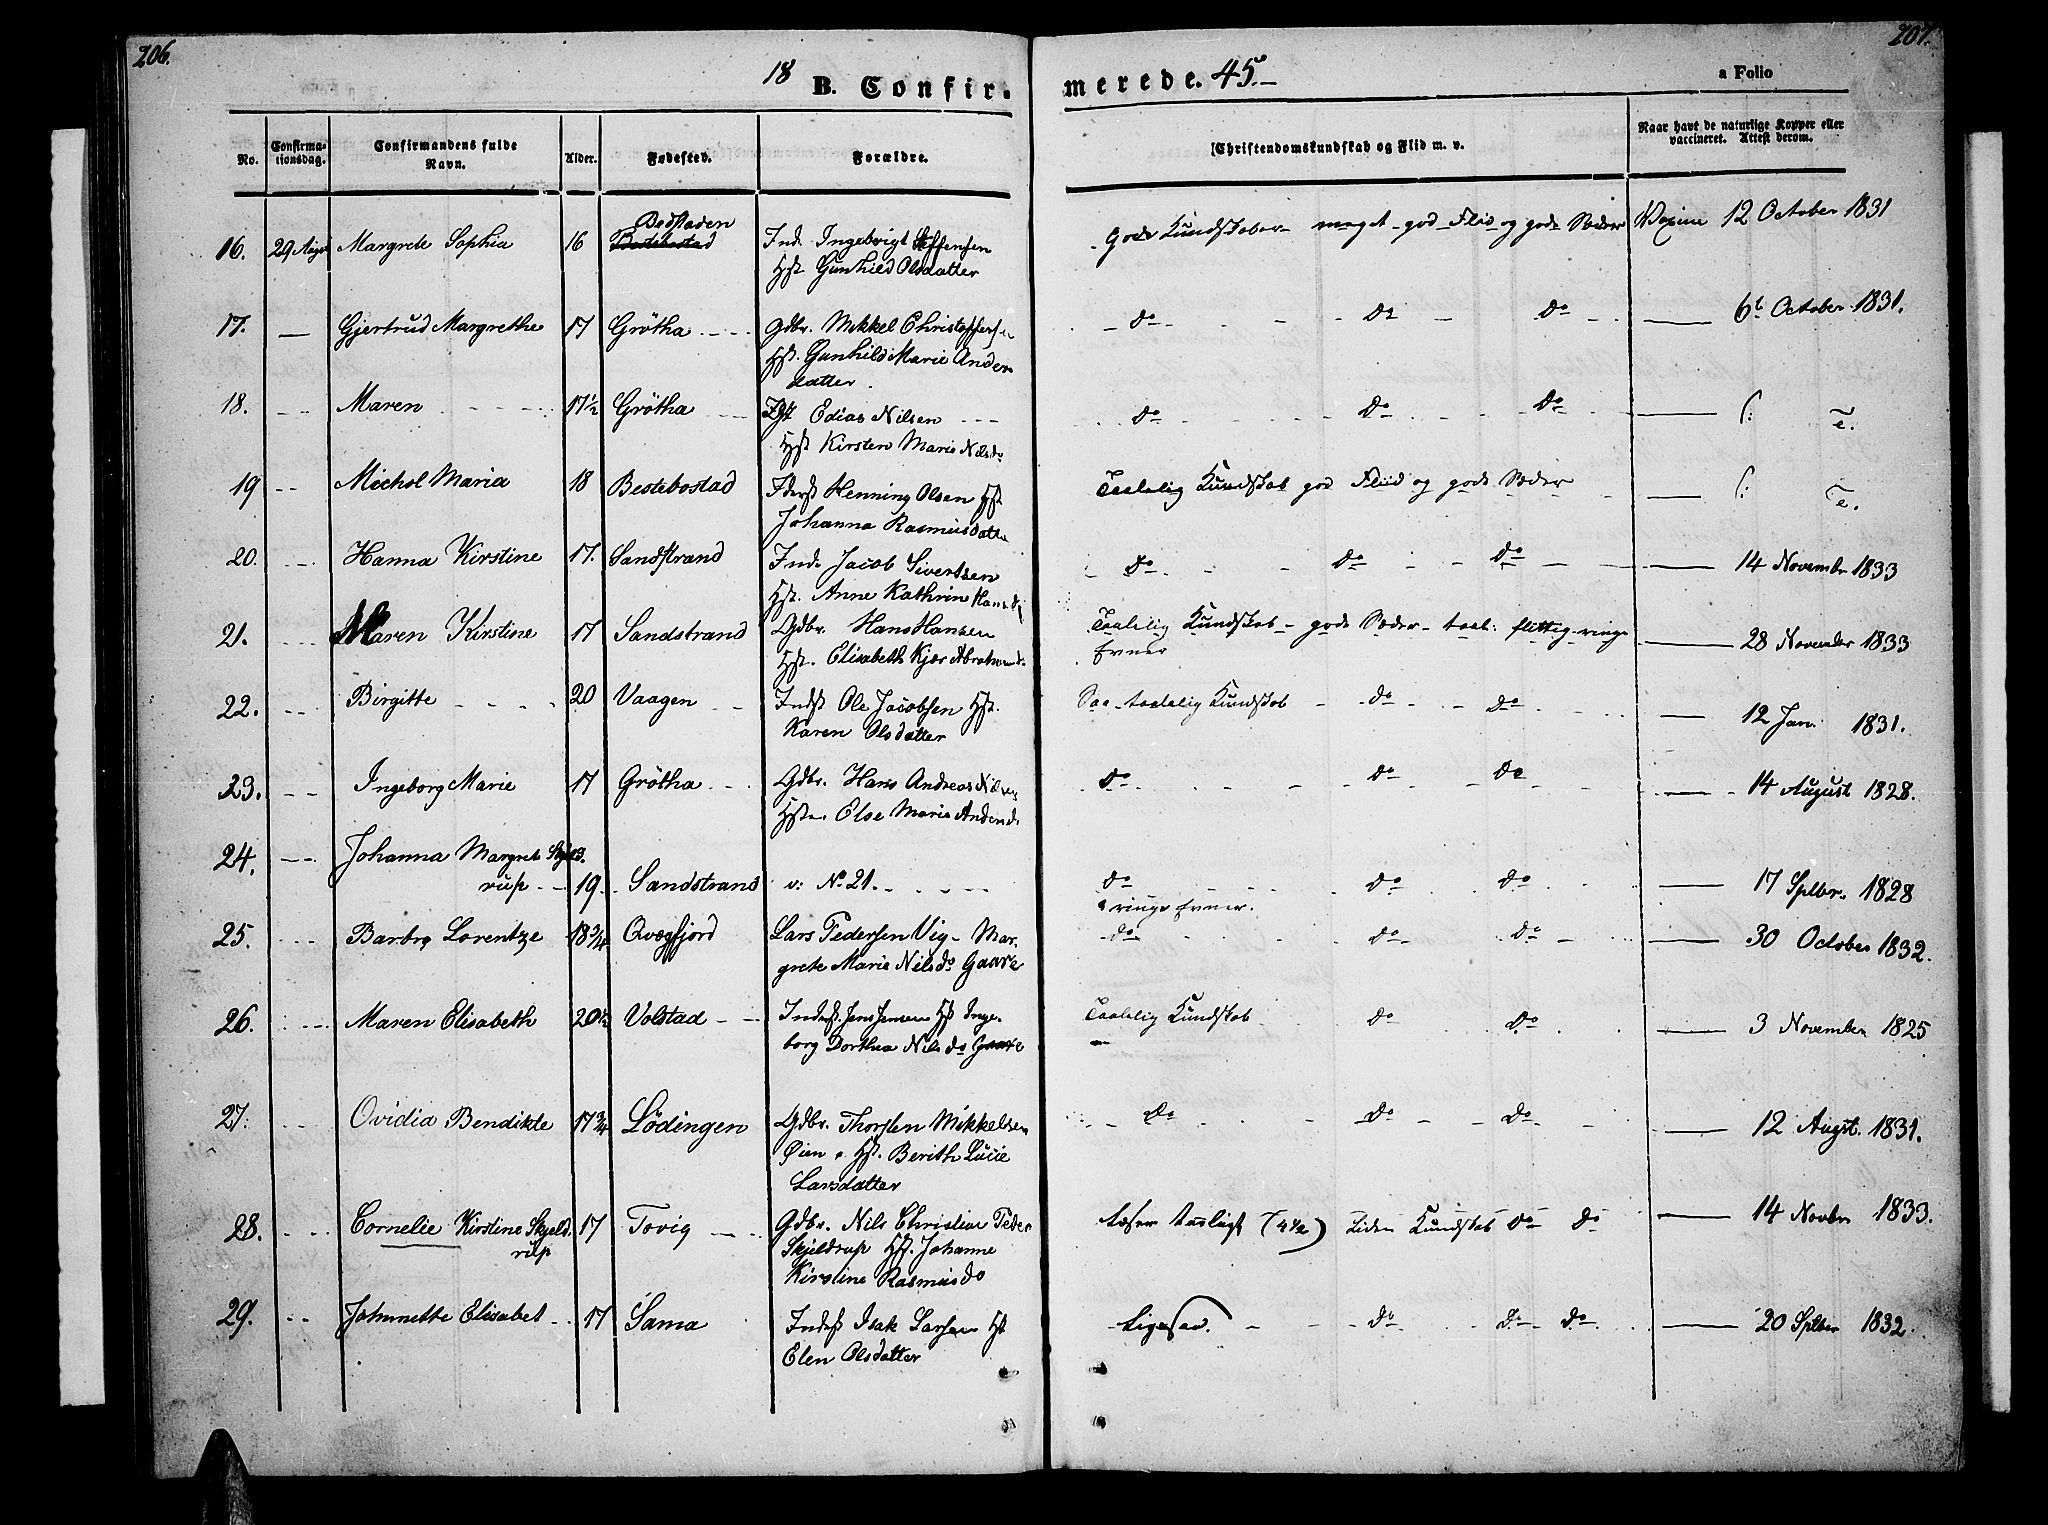 206.
207.
18 B. Confir.
merede. 45.-
a Folio
No.
Confirma-
tionsdag.
Confirmandens fulde
Navn.
Alder.
Fødested.
Forældre.
Christendomskundskab og Flid m. v.
Naar havt de naturlige Kopper eller
vaccineret. Attest derom.
Bodstaden
16. 29 Augst Margrete Sophia 16 Bestebostad Ind. Ingebrigt Steffensen
Hst. Gunhild Olsdatter
Gode Kundskaber- meget god Fliid og gode Sæder Vaxine 12 October 1831
17. — Gjertrud Margrethe 17 Grötha Gdbr. Mikkel Christophersen
Hst. Gunhild Marie Anders
datter.
do do do — 6t October 1831.
18. Maren 17½ Grötha Edias Nilsen
Hst Kirsten Marie Nilsdo
do do do — (: T e.
19 Michol Maria 18 Bestebostad Henning Olsen Hst.
Johanna Rasmusdatter
Taalelig Kundskab god Fliid og gode Sæder — (: T e.
20. Hanna Kirstine 17. Sandstrand Ind. Jacob Sivertsen
Hst. Anne Kathrine Hansd
do do do — 14 Novembr 1833
21. Maren Kirstine 17 Sandstrand Gdbr. Hans Hansen
Hst. Elisabeth Kjær Abrahamsd.
Taalelig Kundskab - gode Sæder - taal: flittig - ringe
Evner
— 28 November 1833
22. Birgitte 20 Vaagen Indst Ole Jacobsen Hst.
Karen Olsdatter
Saa taalelig Kundskab do do — 12 Jan: 1831.
23. Ingeborg Marie 17 Grötha Gdbr. Hans Andreas Nilsen
Hst. Else Marie Andersd.
do do do — 14 August 1828.
24. Johanna Margrete Skjeld
rup 19. Sandstrand v: No 21.
do do do — 17 Sptbr. 1828
ringe Evner.
25. Barbro Lorentze 18¾ Qvægfjord Lars Pedersen Vig - Mar-
grete Marie Nilsdo Gaare
do do do — 30 October 1832.
26. Maren Elisabeth 20½ Volstad Inderst. Jens Jensen Hst Inge-
borg Dorthea Nilsdo Gaare
Taalelig Kundskab do do — 3 November 1825
27. Ovidia Bendikte 17¾ Lödingen Gdbr. Thorsten Mikkelsen
Øien Hst. Berith Lucie
Larsdatter
do do do — 12 Augst. 1831.
28. Cornelie Kirstine Skjeld-
rup 17 Tovig Gdbr. Nils Christian Peder
Skjeldrup Hst. Johanne
Kirstine Rasmusdo
læser daarligt (4½) Liden Kundskab do do — 14 Novbr 1833.
29. Johnnette Elisabet 17 Sama Inderst Isak Larsen Hst
Elen Olsdatter
Ligesaa. do do do — 20 Sptber 1832.